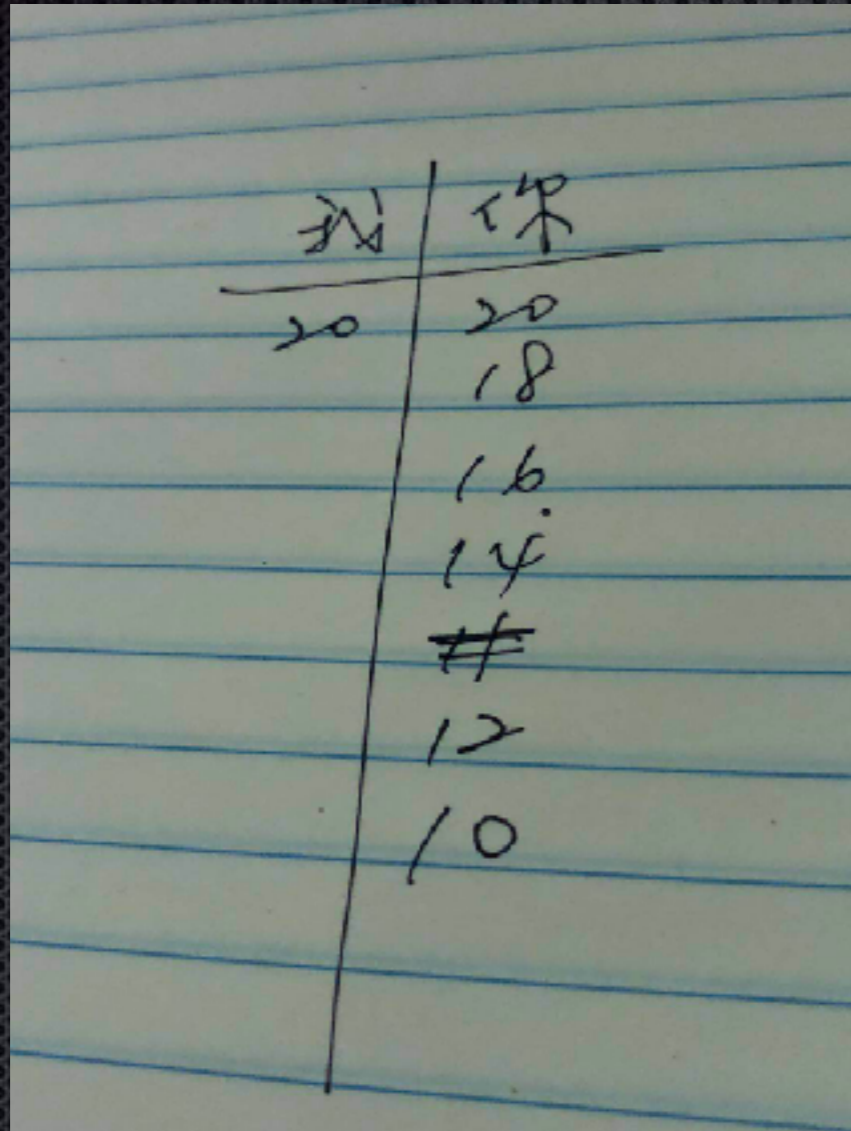 我 你
20 20
18
16
14
12
10